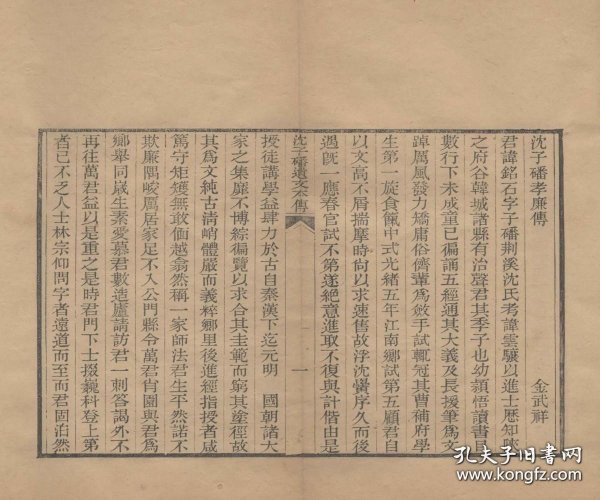 沈子磻孝廉傳
金武祥
君諱銘石字子磻荆溪沈氏考諱雲驤以進士歷知陝
之府谷韓城諸縣有治聲君其季子也幼頴悟讀書目
數行下未成童已徧誦五經通其大義及長援筆爲文
踔厲風發力矯庸俗儕輩爲斂手試輒冠其曹補府學
生第一旋食餼中式光緒五年江南鄉試第五顧君自
以文高不屑揣摩時向以求速售故浮沈黌序久而後
遇旣一應春官試不第遂絕意進取不復與計偕由是
沈子磻遺文本傳
一
授徒講學益肆力於古自秦漢下迄元明　國朝諸大
家之集靡不博綜徧覽以求合其圭範而窮其塗徑故
其爲文純古清峭體嚴而義粹鄉里後進經指授者咸
篤守矩矱無敢偭越翕然稱一家師法君生平然諾不
欺廉隅峻厲居家足不入公門縣令萬君肖園與君爲
鄉舉同歲生素愛慕君數造廬請訪君一刺答謁外不
再往萬君益以是重之是時君門下士掇巍科登上第
者已不乏人士林宗仰問字者遠道而至而君固泊然
孔夫子旧书网
www.kongfz.com